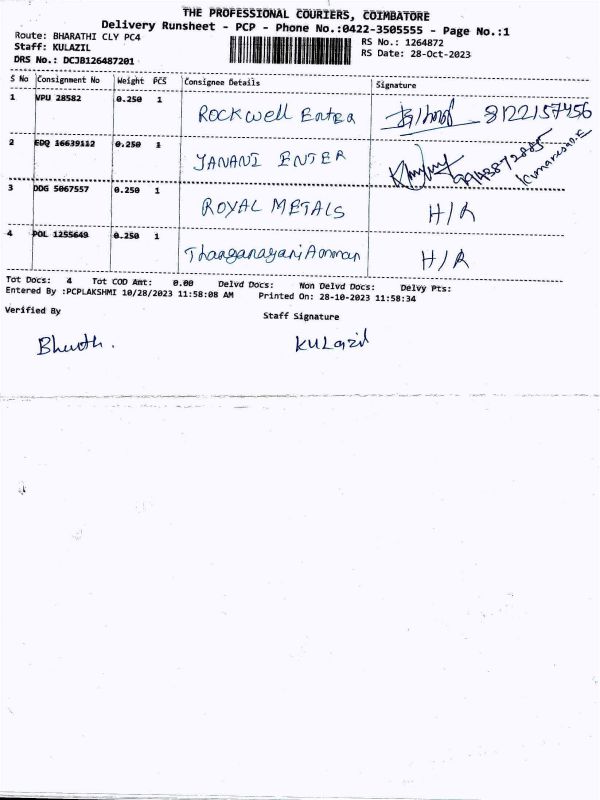 THE PROFESSIONAL COURIERS, COIMBATORE
Delivery Runsheet - PCP - Phone No.:0422-3505555 - Page No.:1
Route: BHARATHI CLY PC4 RS No.: 1264872
Staff: KULAZIL RS Date: 28-Oct-2023
DRS No.: DCJB126487201
S No Consignment No Weight PCS Consignee Details Signature
1 VPU 28582 0.250 1 ROCKWell EnteR 8122157456
2 EDQ 16639112 0.250 1 JANANI ENTER Kumaresan.E
3 DDG 5067557 0.250 1 ROYAL METALS H/R
4 POL 1255649 0.250 1 ThanganayaniAmman H/R
Tot Docs: 4 Tot COD Amt: 0.00 Delvd Docs: Non Delvd Docs: Delvy Pts:
Entered By :PCPLAKSHMI 10/28/2023 11:58:08 AM Printed On: 28-10-2023 11:58:34
Verified By Staff Signature
KULazil